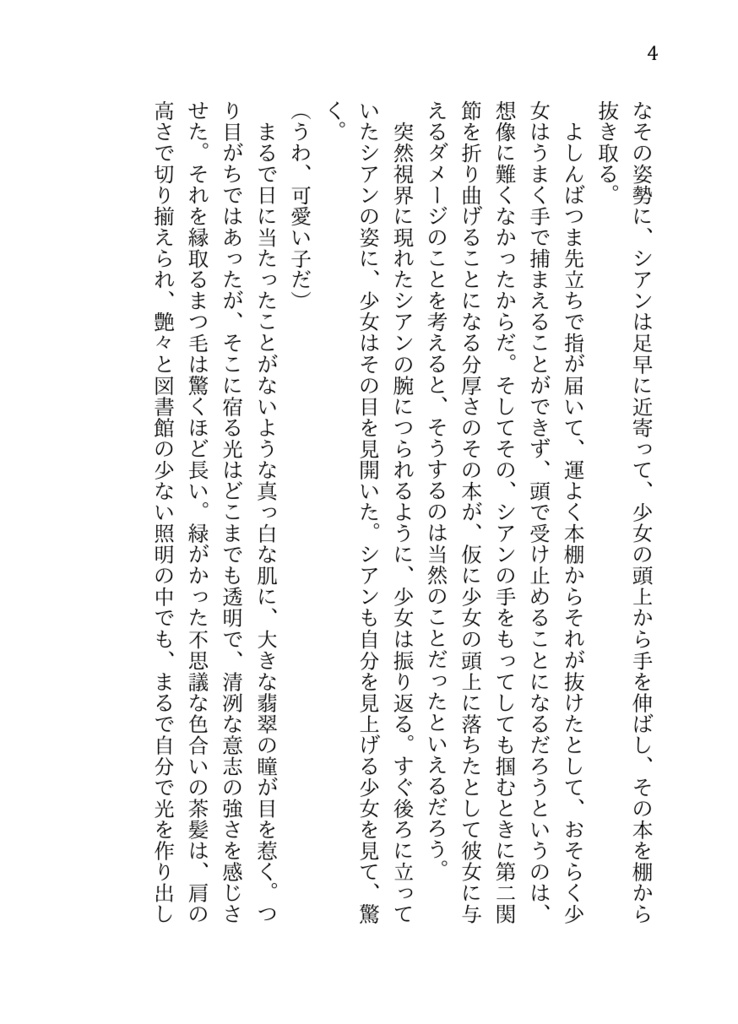 4
なその姿勢に、シアンは足早に近寄って、少女の頭上から手を伸ばし、その本を棚から
抜き取る。
　よしんばつま先立ちで指が届いて、運よく本棚からそれが抜けたとして、おそらく少
女はうまく手で捕まえることができず、頭で受け止めることになるだろうというのは、
想像に難くなかったからだ。そしてその、シアンの手をもってしても掴むときに第二関
節を折り曲げることになる分厚さのその本が、仮に少女の頭上に落ちたとして彼女に与
えるダメージのことを考えると、そうするのは当然のことだったといえるだろう。
　突然視界に現れたシアンの腕につられるように、少女は振り返る。すぐ後ろに立って
いたシアンの姿に、少女はその目を見開いた。シアンも自分を見上げる少女を見て、驚
く。
（うわ、可愛い子だ）
　まるで日に当たったことがないような真っ白な肌に、大きな翡翠の瞳が目を惹く。つ
り目がちではあったが、そこに宿る光はどこまでも透明で、清冽な意志の強さを感じさ
せた。それを縁取るまつ毛は驚くほど長い。緑がかった不思議な色合いの茶髪は、肩の
高さで切り揃えられ、艶々と図書館の少ない照明の中でも、まるで自分で光を作り出し